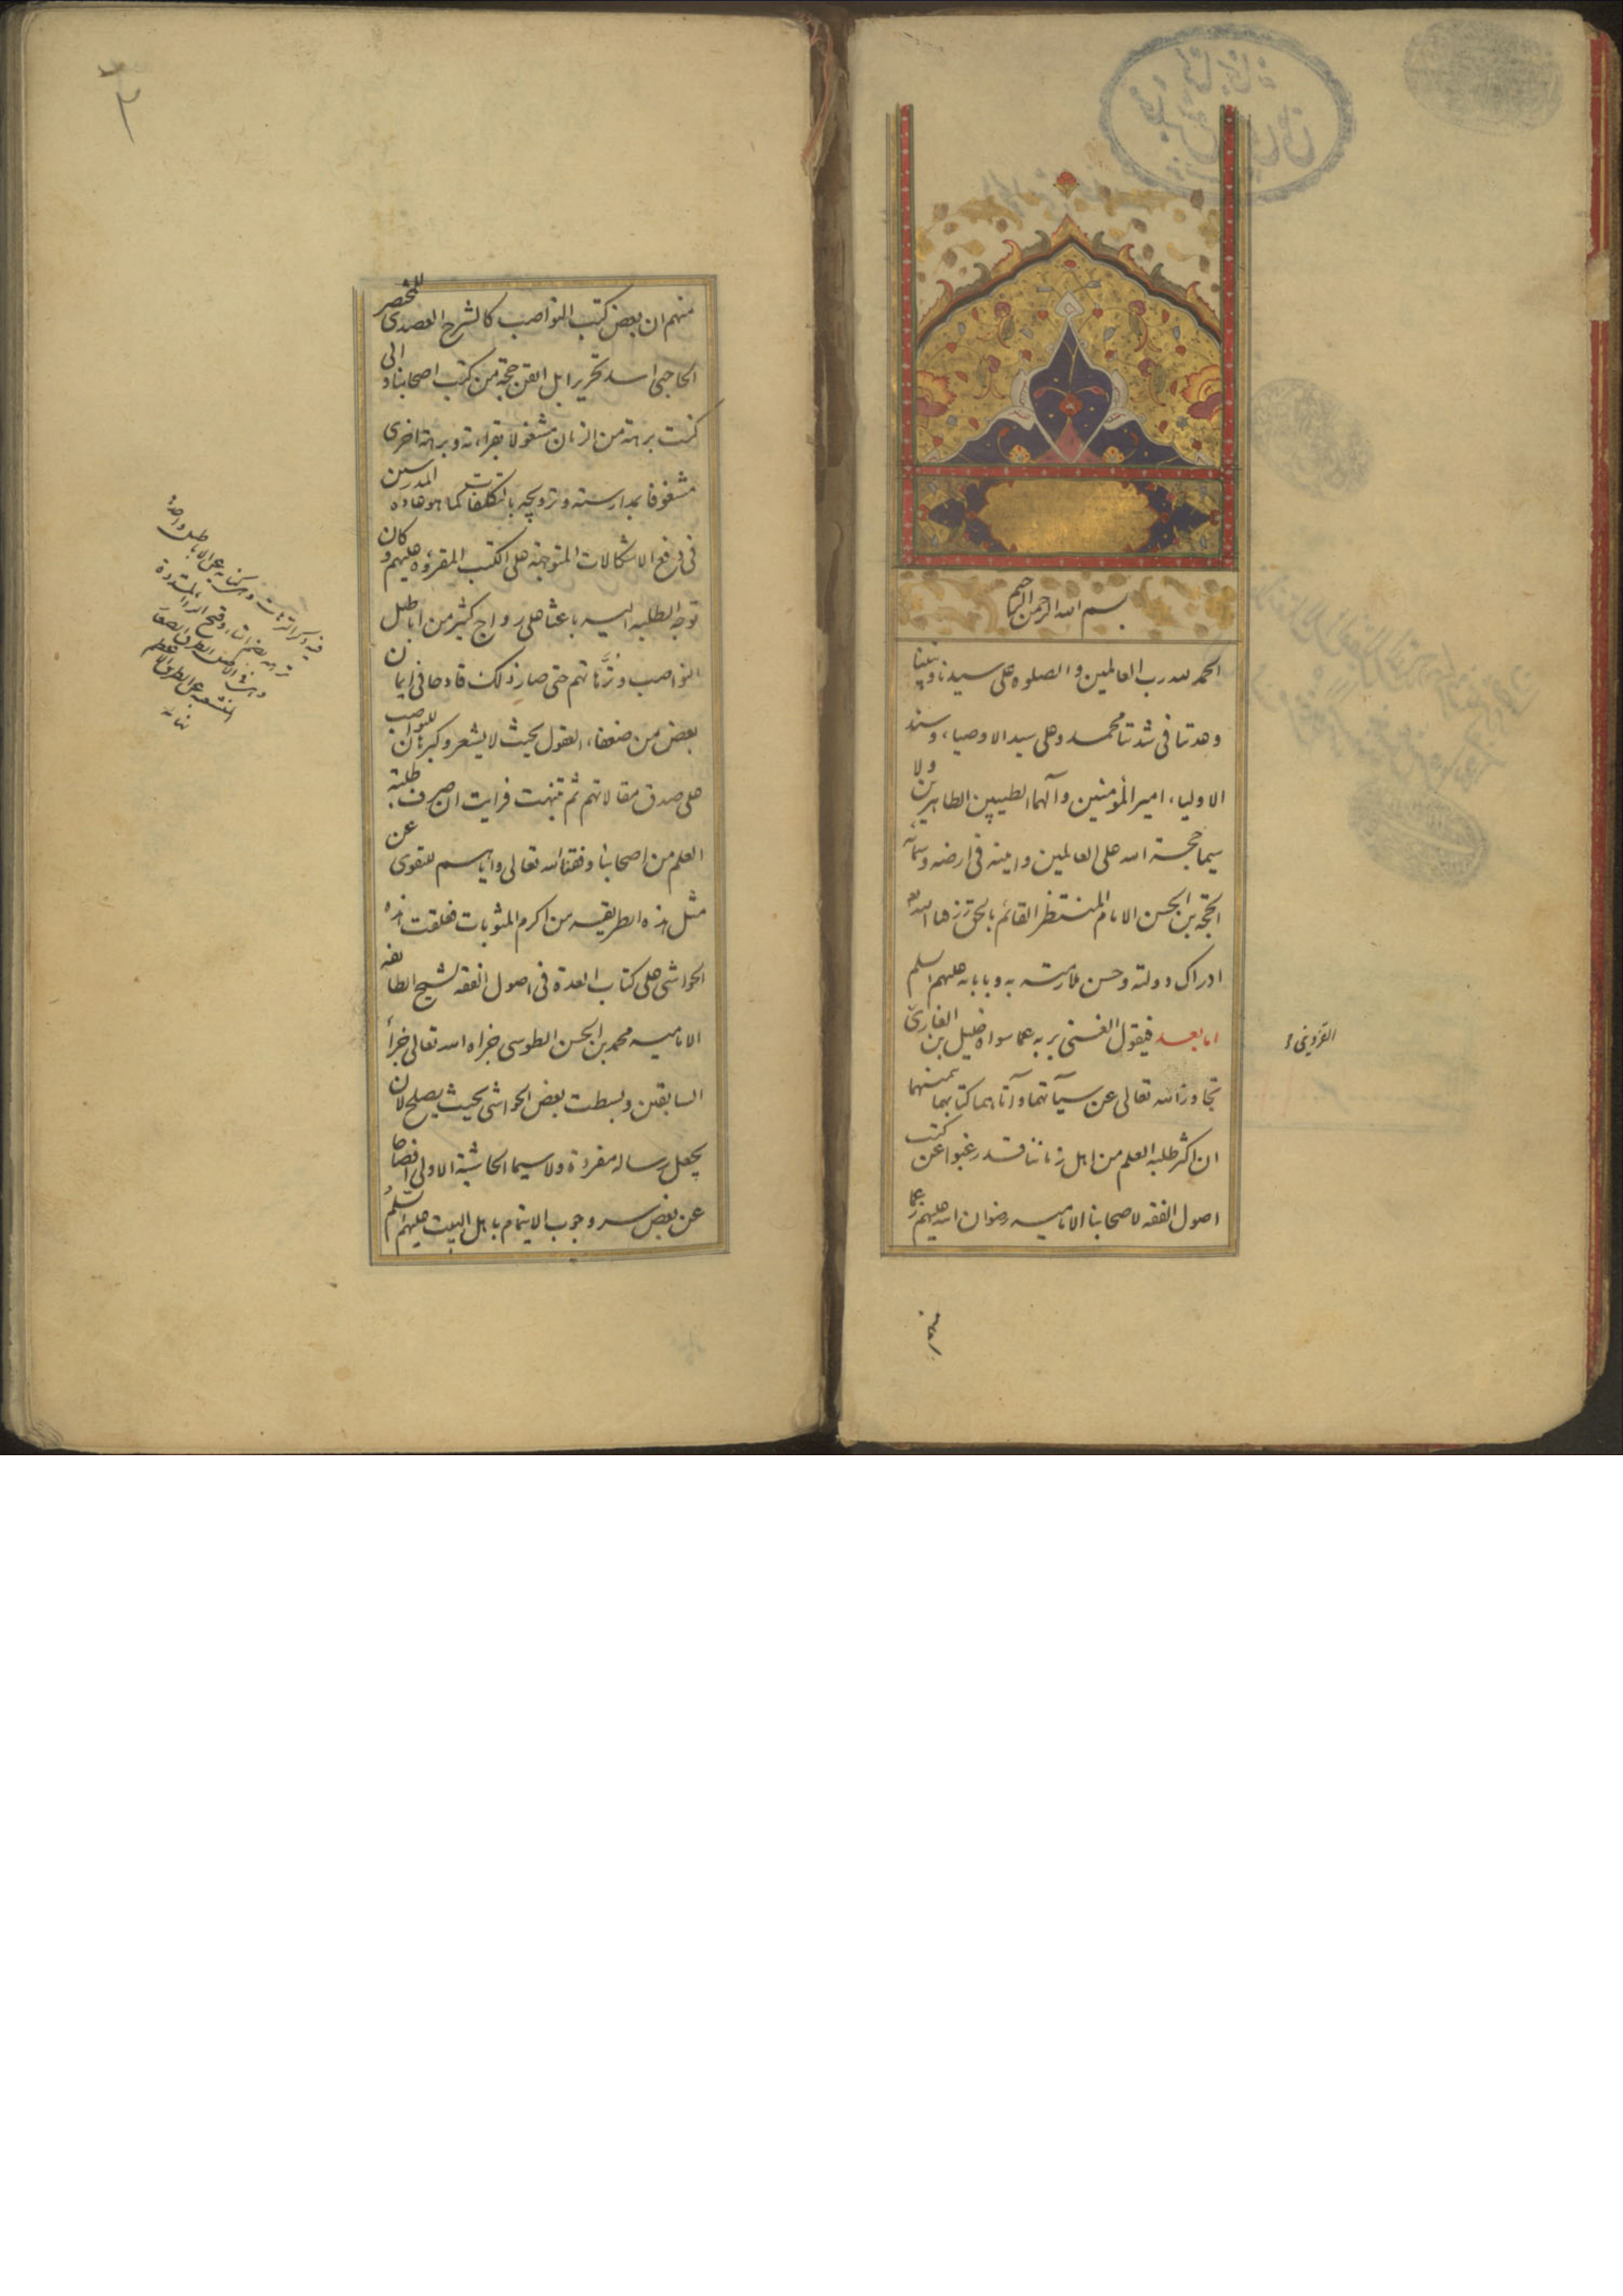 بسم الله الرحمن الرحيم
الحمد لله رب العالمين والصلوه على سيدنا ونبينا
وعدتنا فى شدتنا محمد وعلى سيد الاوصياء وسند
الاولياء امير المؤمنين وآلهما الطيبين الطاهرين ولا
سيما حجة الله على العالمين وامينه فى ارضه وسمائه
الحجة بن الحسن الامام المنتظر القائم بالحق رزقنا الله
ادراك دولته وحسن ملازمته به وبآبائه عليهم السلم
اما بعد فيقول الغنى بربه عما سواه خليل بن الغازى
القزوينى
تجاوز الله تعالى عن سيآتهما وآتاهما كتابهما بيمينهما
ان اكثر طلبة العلم من اهل زماننا قد رغبوا عن كتب
اصول الفقه لاصحابنا الامامية رضوان الله عليهم زعما
منهم ان
منهم ان بعض كتب النواصب كالشرح العضدى للمختصر
الحاجبى اسد تحريرا بل اتقن حجة من كتب اصحابنا وانى
كنت برهة من الزمان مشغولا بقراءته وبرهة اخرى
مشغوفا بمدارسته وترويجه بالتكلفات كما هو عادة المدرسين
فى دفع الاشكالات المتوجهة على الكتب المقروة عليهم وكان
توجه الطلبة اليه باعثا على رواج كثير من اباطيل
النواصب وترّهاتهم حتى صار ذلك قادحا فى ايمان
بعض من ضعفاء العقول بحيث لا يشعر وكبرهان للنواصب
على صدق مقالاتهم ثم تنبهت فرايت ان صرف طلبة
العلم من اصحابنا وفقنا الله تعالى واياهم للتقوى عن
مثل هذه الطريقه من اكرم المثوبات فعلقت هذه
الحواشى على كتاب العدة فى اصول الفقه لشيخ الطائفه
الاماميه محمد بن الحسن الطوسى جزاه الله تعالى جزاء
السابقين وبسطت بعض الحواشى بحيث يصلح لان
يجعل رسالة مفردة ولا سيما الحاشية الاولى افصاحا
عن بعض سر وجوب الايتمام باهل البيت عليهم السلم
وهى كناية عن الاباطيل واحدة
ترهة بضم التاء وفتح الراء المشددة
وهى فى الاصل الطرق الصغار
المنشعبة عن الطريق الاعظم
نهاية